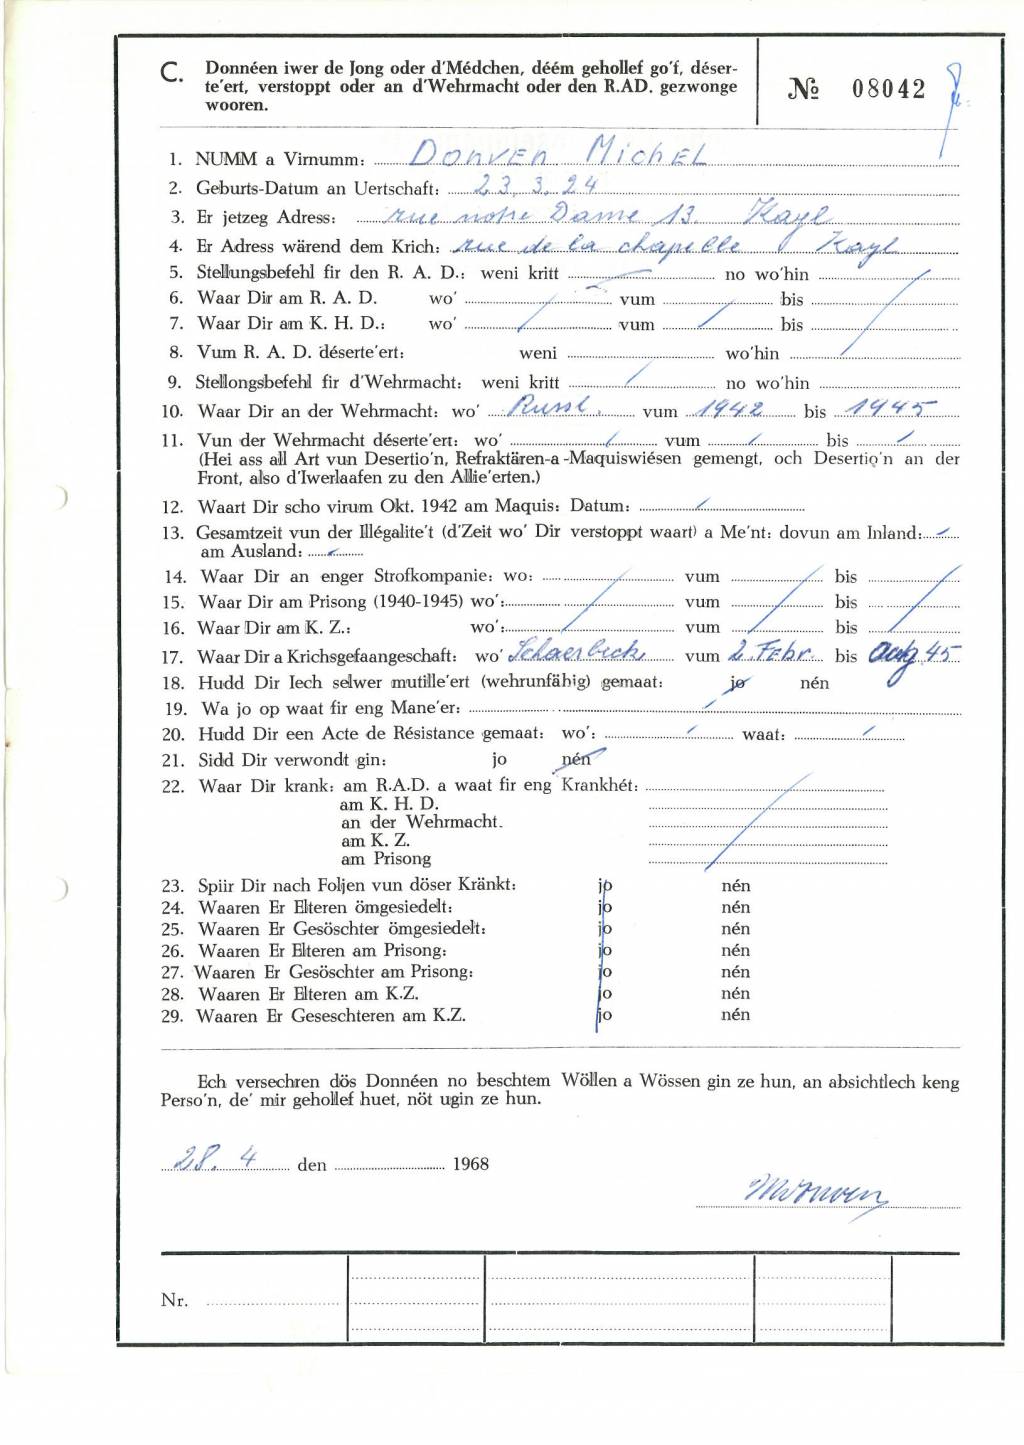 C. Donnéen iwer de Jong oder d'Médchen, déém gehollef go'f, déser-
te'ert, verstoppt oder an d'Wehrmacht oder den R.AD. gezwonge
wooren.
№ 08042
1. NUMM a Virnumm: Donven Michel
2. Geburts-Datum an Uertschaft: 23.3.24
3. Er jetzeg Adress: rue notre Dame 13. Kayl
4. Er Adress wärend dem Krich: rue de la chapelle Kayl
5. Stellungsbefehl fir den R. A. D.: weni kritt no wo'hin
6. Waar Dir am R. A. D. wo' vum bis
7. Waar Dir am K. H. D.: wo' vum bis
8. Vum R. A. D. déserte'ert: weni wo'hin
9. Stellongsbefehl fir d'Wehrmacht: weni kritt no wo'hin
10. Waar Dir an der Wehrmacht: wo' Russl. vum 1942 bis 1945
11. Vun der Wehrmacht déserte'ert: wo' vum bis
(Hei ass all Art vun Desertio'n, Refraktären-a-Maquiswiésen gemengt, och Desertio'n an der
Front, also d'Iwerlaafen zu den Allie'erten.)
12. Waart Dir scho virum Okt. 1942 am Maquis: Datum:
13. Gesamtzeit vun der Illégalite't (d'Zeit wo' Dir verstoppt waart) a Me'nt: dovun am Inland:
am Ausland:
14. Waar Dir an enger Strofkompanie: wo: vum bis
15. Waar Dir am Prisong (1940-1945) wo': vum bis
16. Waar Dir am K. Z.: wo': vum bis
17. Waar Dir a Krichsgefaangeschaft: wo' Schaerbeck vum 2. Febr. bis Aug 45
18. Hudd Dir Iech selwer mutille'ert (wehrunfähig) gemaat: jo nén
19. Wa jo op waat fir eng Mane'er:
20. Hudd Dir een Acte de Résistance gemaat: wo': waat:
21. Sidd Dir verwondt gin: jo nén
22. Waar Dir krank: am R.A.D. a waat fir eng Krankhét:
am K. H. D.
an der Wehrmacht.
am K. Z.
am Prisong
23. Spiir Dir nach Foljen vun döser Kränkt: jo nén
24. Waaren Er Elteren ömgesiedelt: jo nén
25. Waaren Er Gesöschter ömgesiedelt: jo nén
26. Waaren Er Elteren am Prisong: jo nén
27. Waaren Er Gesöschter am Prisong: jo nén
28. Waaren Er Elteren am K.Z. jo nén
29. Waaren Er Geseschteren am K.Z. jo nén
Ech versechren dös Donnéen no beschtem Wöllen a Wössen gin ze hun, an absichtlech keng
Perso'n, de' mir gehollef huet, nöt ugin ze hun.
28. 4 den 1968
MDonven
Nr.